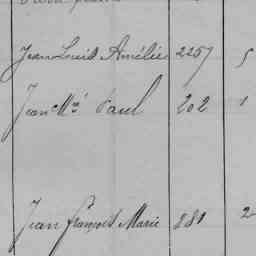 Jean Louis Amélie 2257 5
Jean Mie Paul 202 1
Jean François Marie 281 2